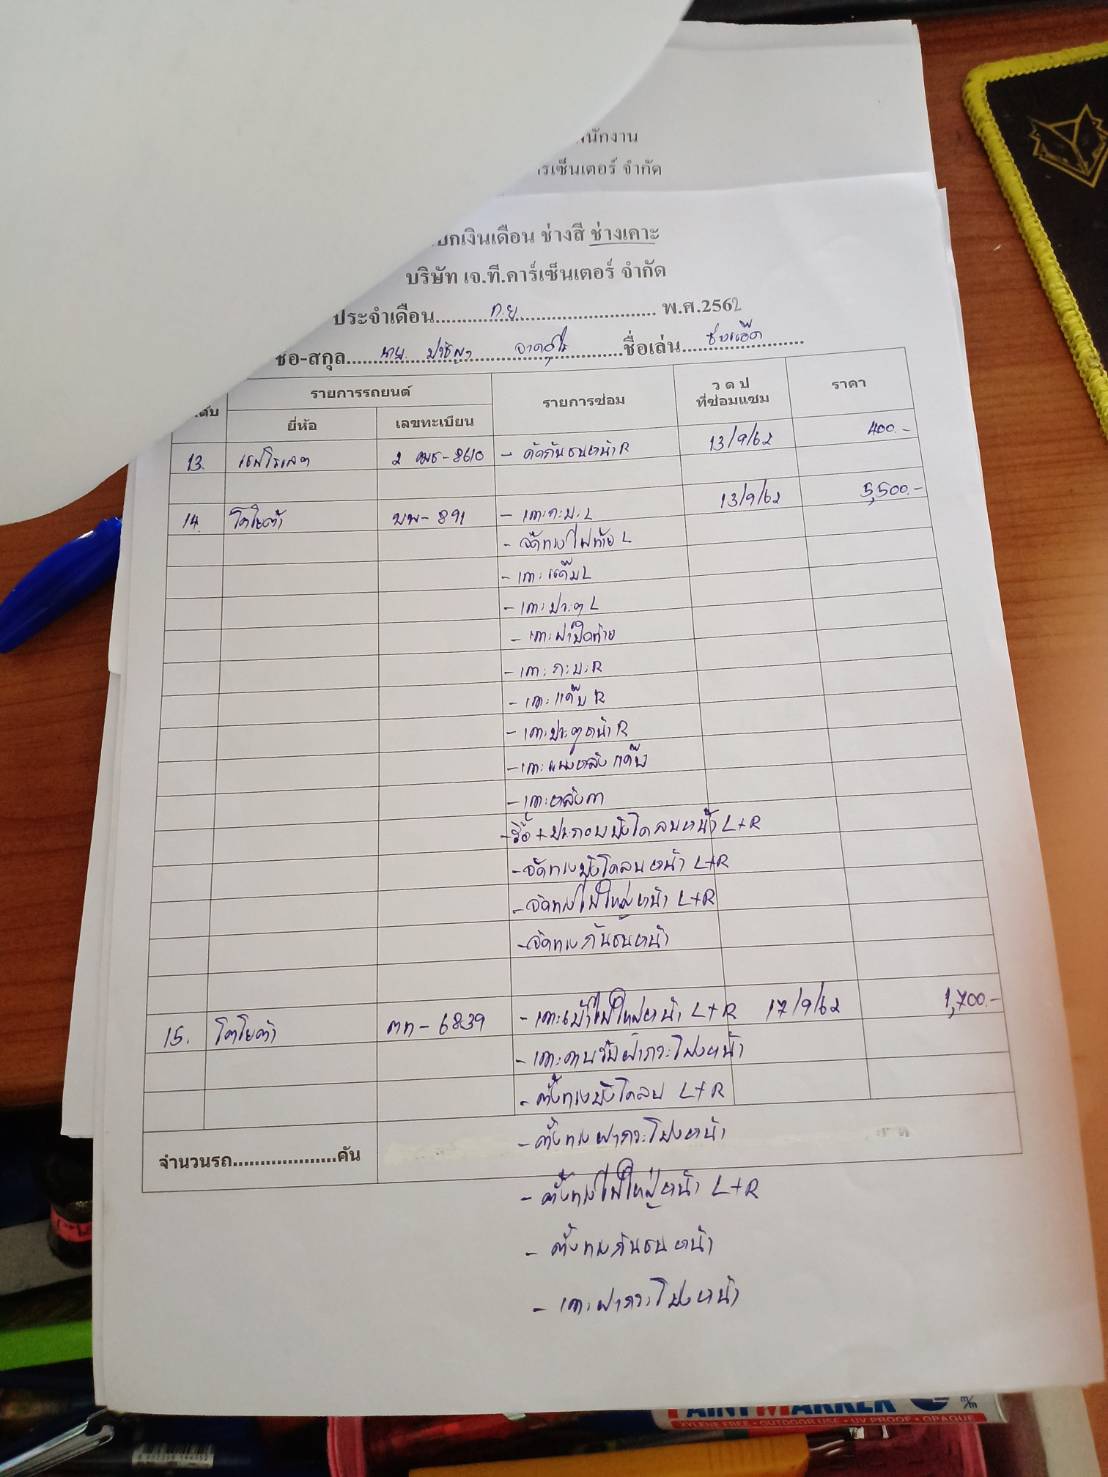 นักงาน
รเซ็นเตอร์ จำกัด
บกเงินเดือน ช่างสี ช่างเคาะ
บริษัท เจ.ที.คาร์เซ็นเตอร์ จำกัด
ประจำเดือน.......ก.ย.......พ.ศ.2562
ชื่อ-สกุล.......นาย.......ชื่อเล่น.......
ดับ รายการรถยนต์ รายการซ่อม ว ด ป ที่ซ่อมแซม ราคา
ยี่ห้อ เลขทะเบียน
13. เชฟโรเลต 2 -8610 - ดัดกันชนหน้า R 13/9/62 400.-
14. โตโยต้า บพ-891 - เคาะก.บ.L 13/9/62 5,500.-
- จัดทางไฟท้าย L
- เคาะแค๊บ L
- เคาะประตู L
- เคาะฝาปิดท้าย
- เคาะ ก.บ.R
- เคาะแค๊บ R
- เคาะประตูหน้า R
- เคาะแผงหลังแค๊บ
- เคาะหลังคา
- รื้อ + ประกอบบังโคลนหน้า L+R
- จัดทางบังโคลนหน้า L+R
- จัดทางไฟใหญ่หน้า L+R
- จัดทางกันชนหน้า
15. โตโยต้า ตท-6839 - เคาะเบ้าไฟใหญ่หน้า L+R 17/9/62 1,700.-
- เคาะคานรับฝากระโปรงหน้า
- ตั้งทางบังโคลน L+R
- ตั้งทางฝากระโปรงหน้า
จำนวนรถ...................คัน
- ตั้งทางไฟใหญ่หน้า L+R
- ตั้งทางกันชนหน้า
- เคาะฝากระโปรงหน้า
PAINT MARKER
XYLENE FREE · OUTDOOR USE · UV PROOF · OPAQUE